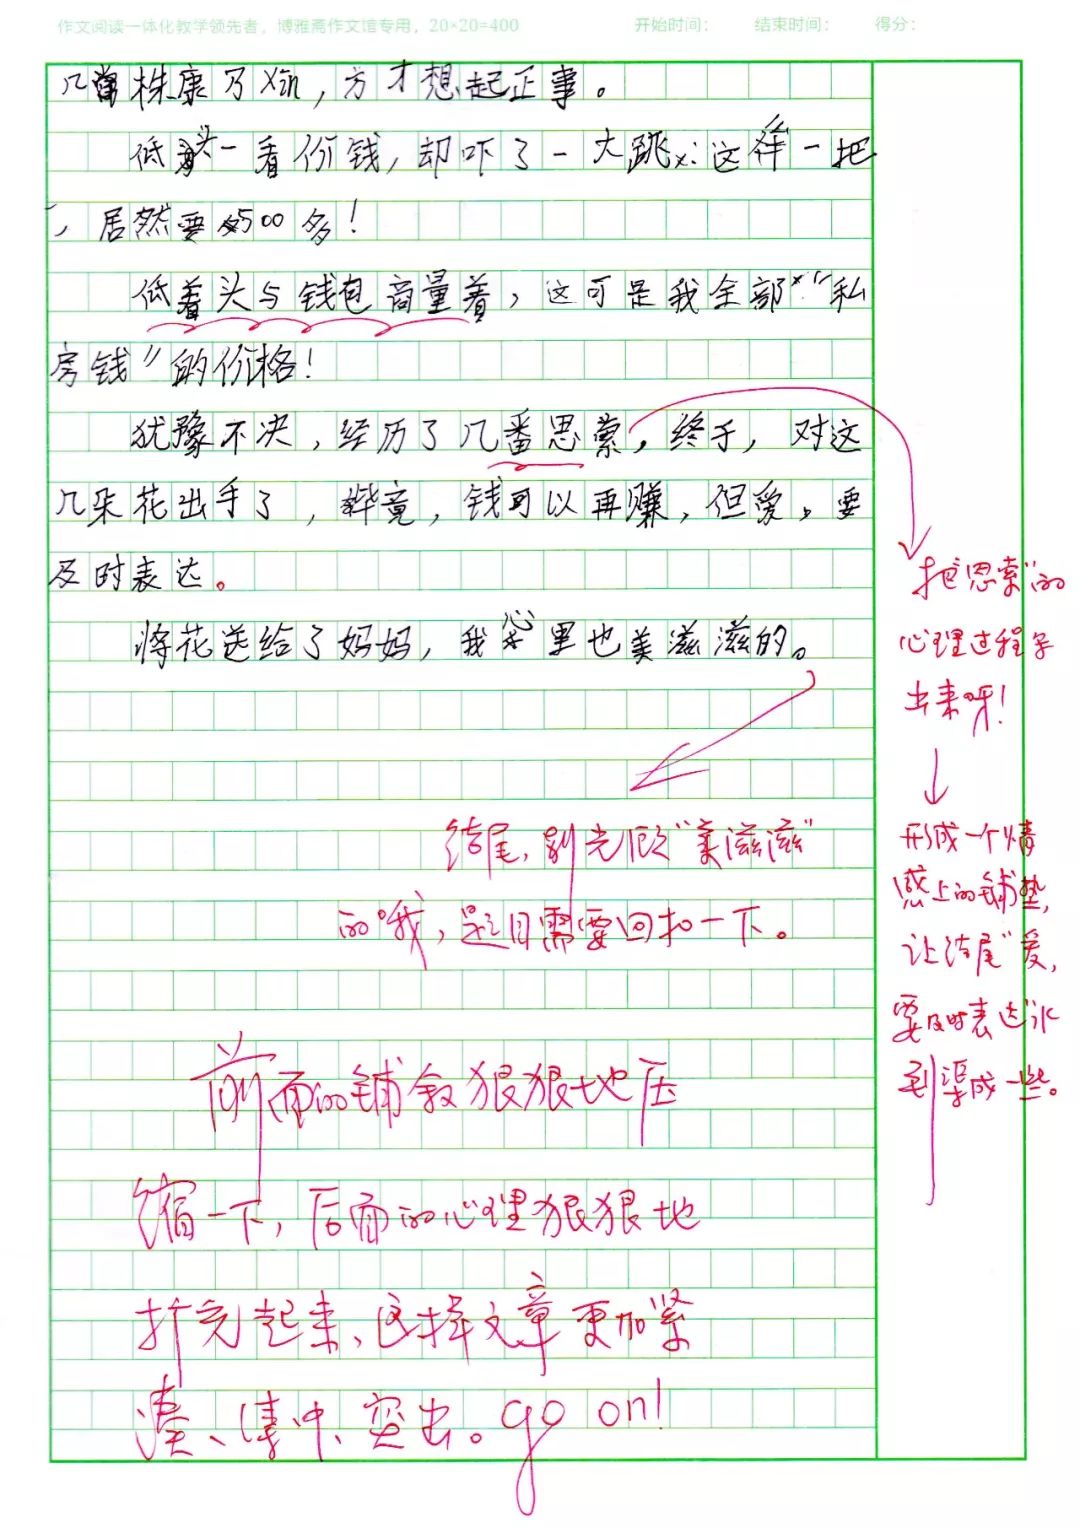 作文阅读一体化教学领先者，博雅斋作文馆专用，20×20=400 开始时间： 结束时间： 得分：
几株康乃馨，方才想起正事。
低头一看价钱，却吓了一大跳：这样一把
，居然要500多！
低着头与钱包商量着，这可是我全部“私
房钱”的价格！
犹豫不决，经历了几番思索，终于，对这
几朵花出手了，毕竟，钱可以再赚，但爱，要
及时表达。
将花送给了妈妈，我心里也美滋滋的。
把“思索”的
心理过程写
出来呀！
形成一个情
感上的铺垫，
让结尾“爱，
要及时表达”水
到渠成一些。
结尾，别光顾“美滋滋”
的“我”，题目需要回扣一下。
前面的铺叙狠狠地压
缩一下，后面的心理狠狠地
扩充起来，这样文章更加紧
凑、集中、突出。go on!